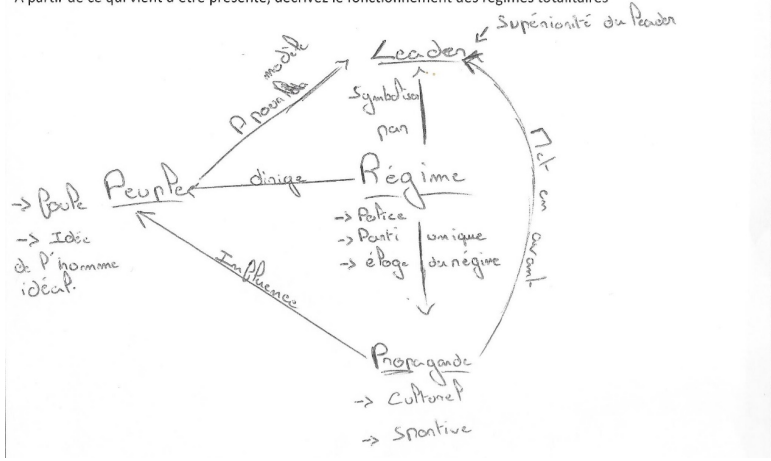 A partir de ce qui vient d'être présenté, décrivez le fonctionnement des régimes totalitaires
Supériorité du leader
Leader
A pour
modèle
Symbolisé
par
Met en avant
Peuple
-> foule
-> Idée
de l'homme
idéal.
dirige
Régime
-> Police
-> Parti unique
-> éloge du régime
Influence
Propagande
-> Culturel
-> Sportive